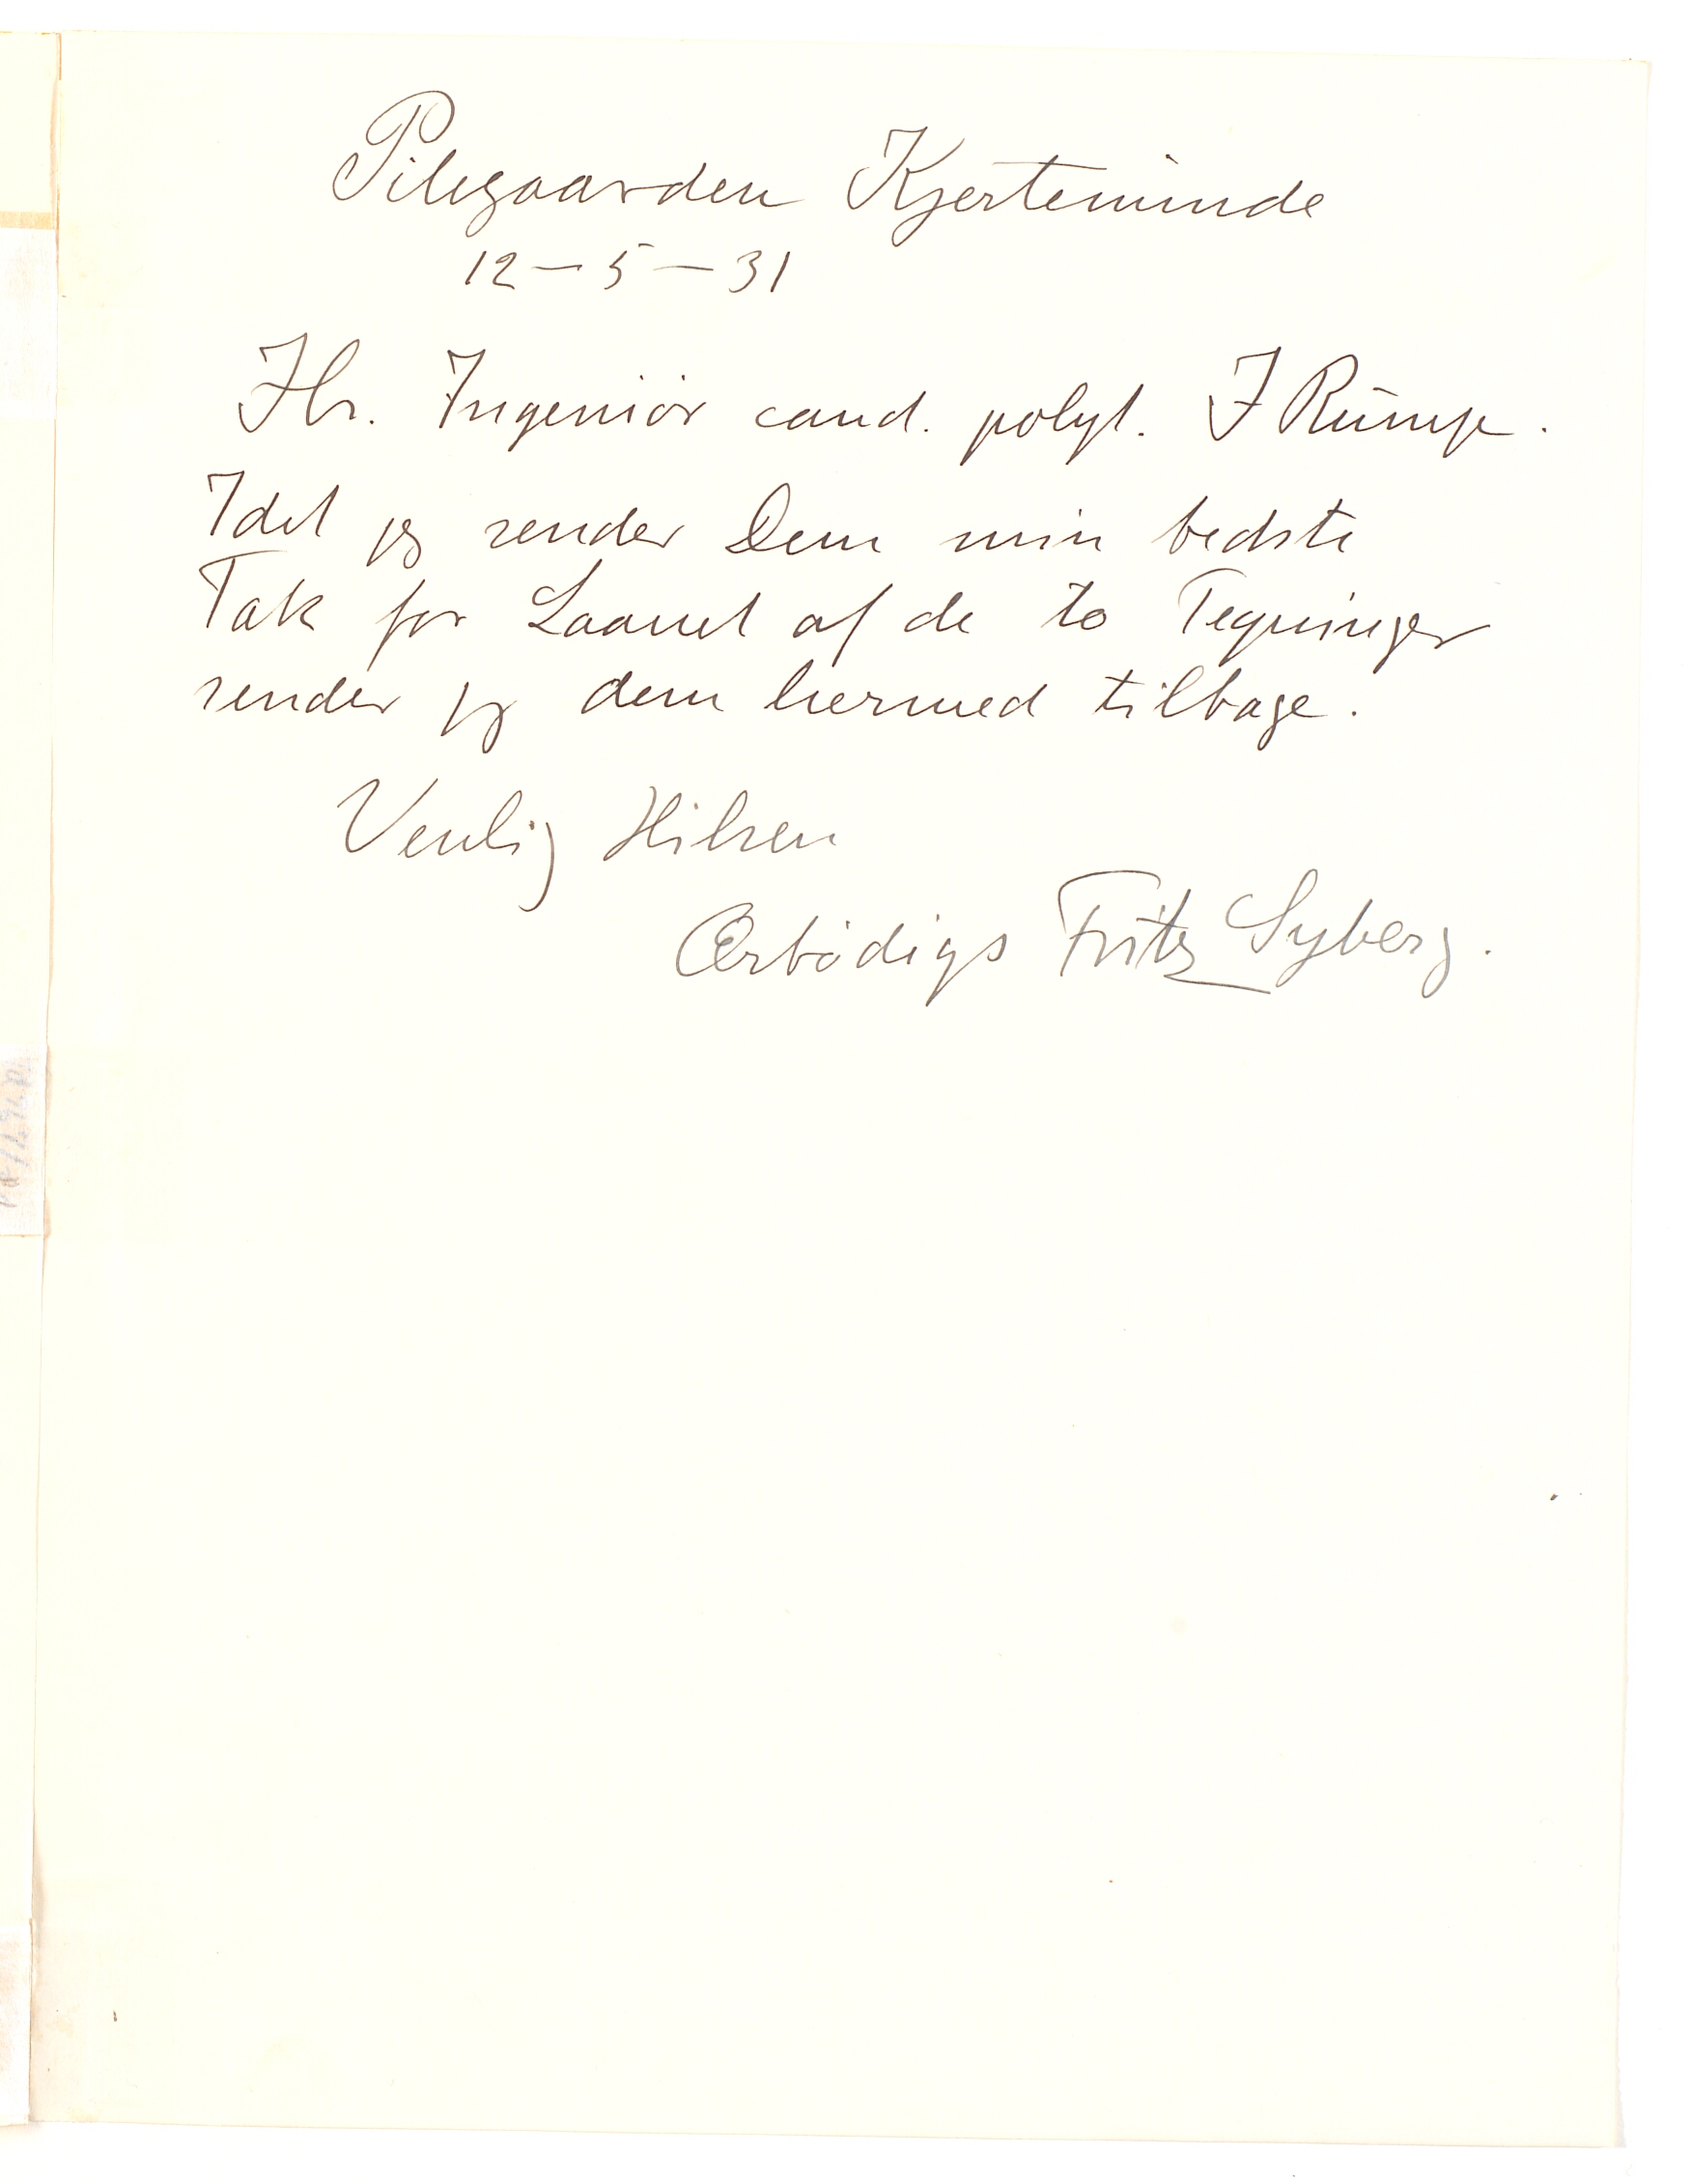 Pilegaarden Kjerteminde
12 – 5 – 31
Hr. Ingeniör cand. polyt. J Rump.
Idet jeg sender Dem min bedste
Tak for Laanet af de to Tegninger
sender jeg dem hermed tilbage.
Venlig Hilsen
Ærbödigs Fritz Syberg.